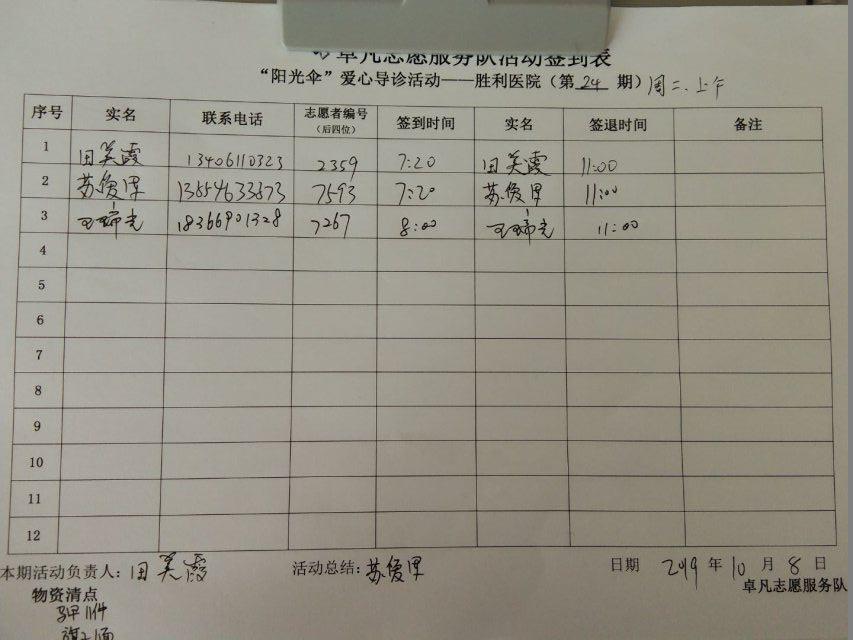 卓凡志愿服务队活动签到表
“阳光伞”爱心导诊活动——胜利医院（第 24 期）周二.上午
序号 实名 联系电话 志愿者编号（后四位） 签到时间 实名 签退时间 备注
1 田美霞 13406110323 2359 7:20 田美霞 11:00
2 苏俊 13854633873 7593 7:20 苏俊 11:00
3 18366901328 7267 8:00 11:00
4
5
6
7
8
9
10
11
12
本期活动负责人：田美霞 活动总结：苏俊 日期 2019 年 10 月 8 日
物资清点 卓凡志愿服务队
11件